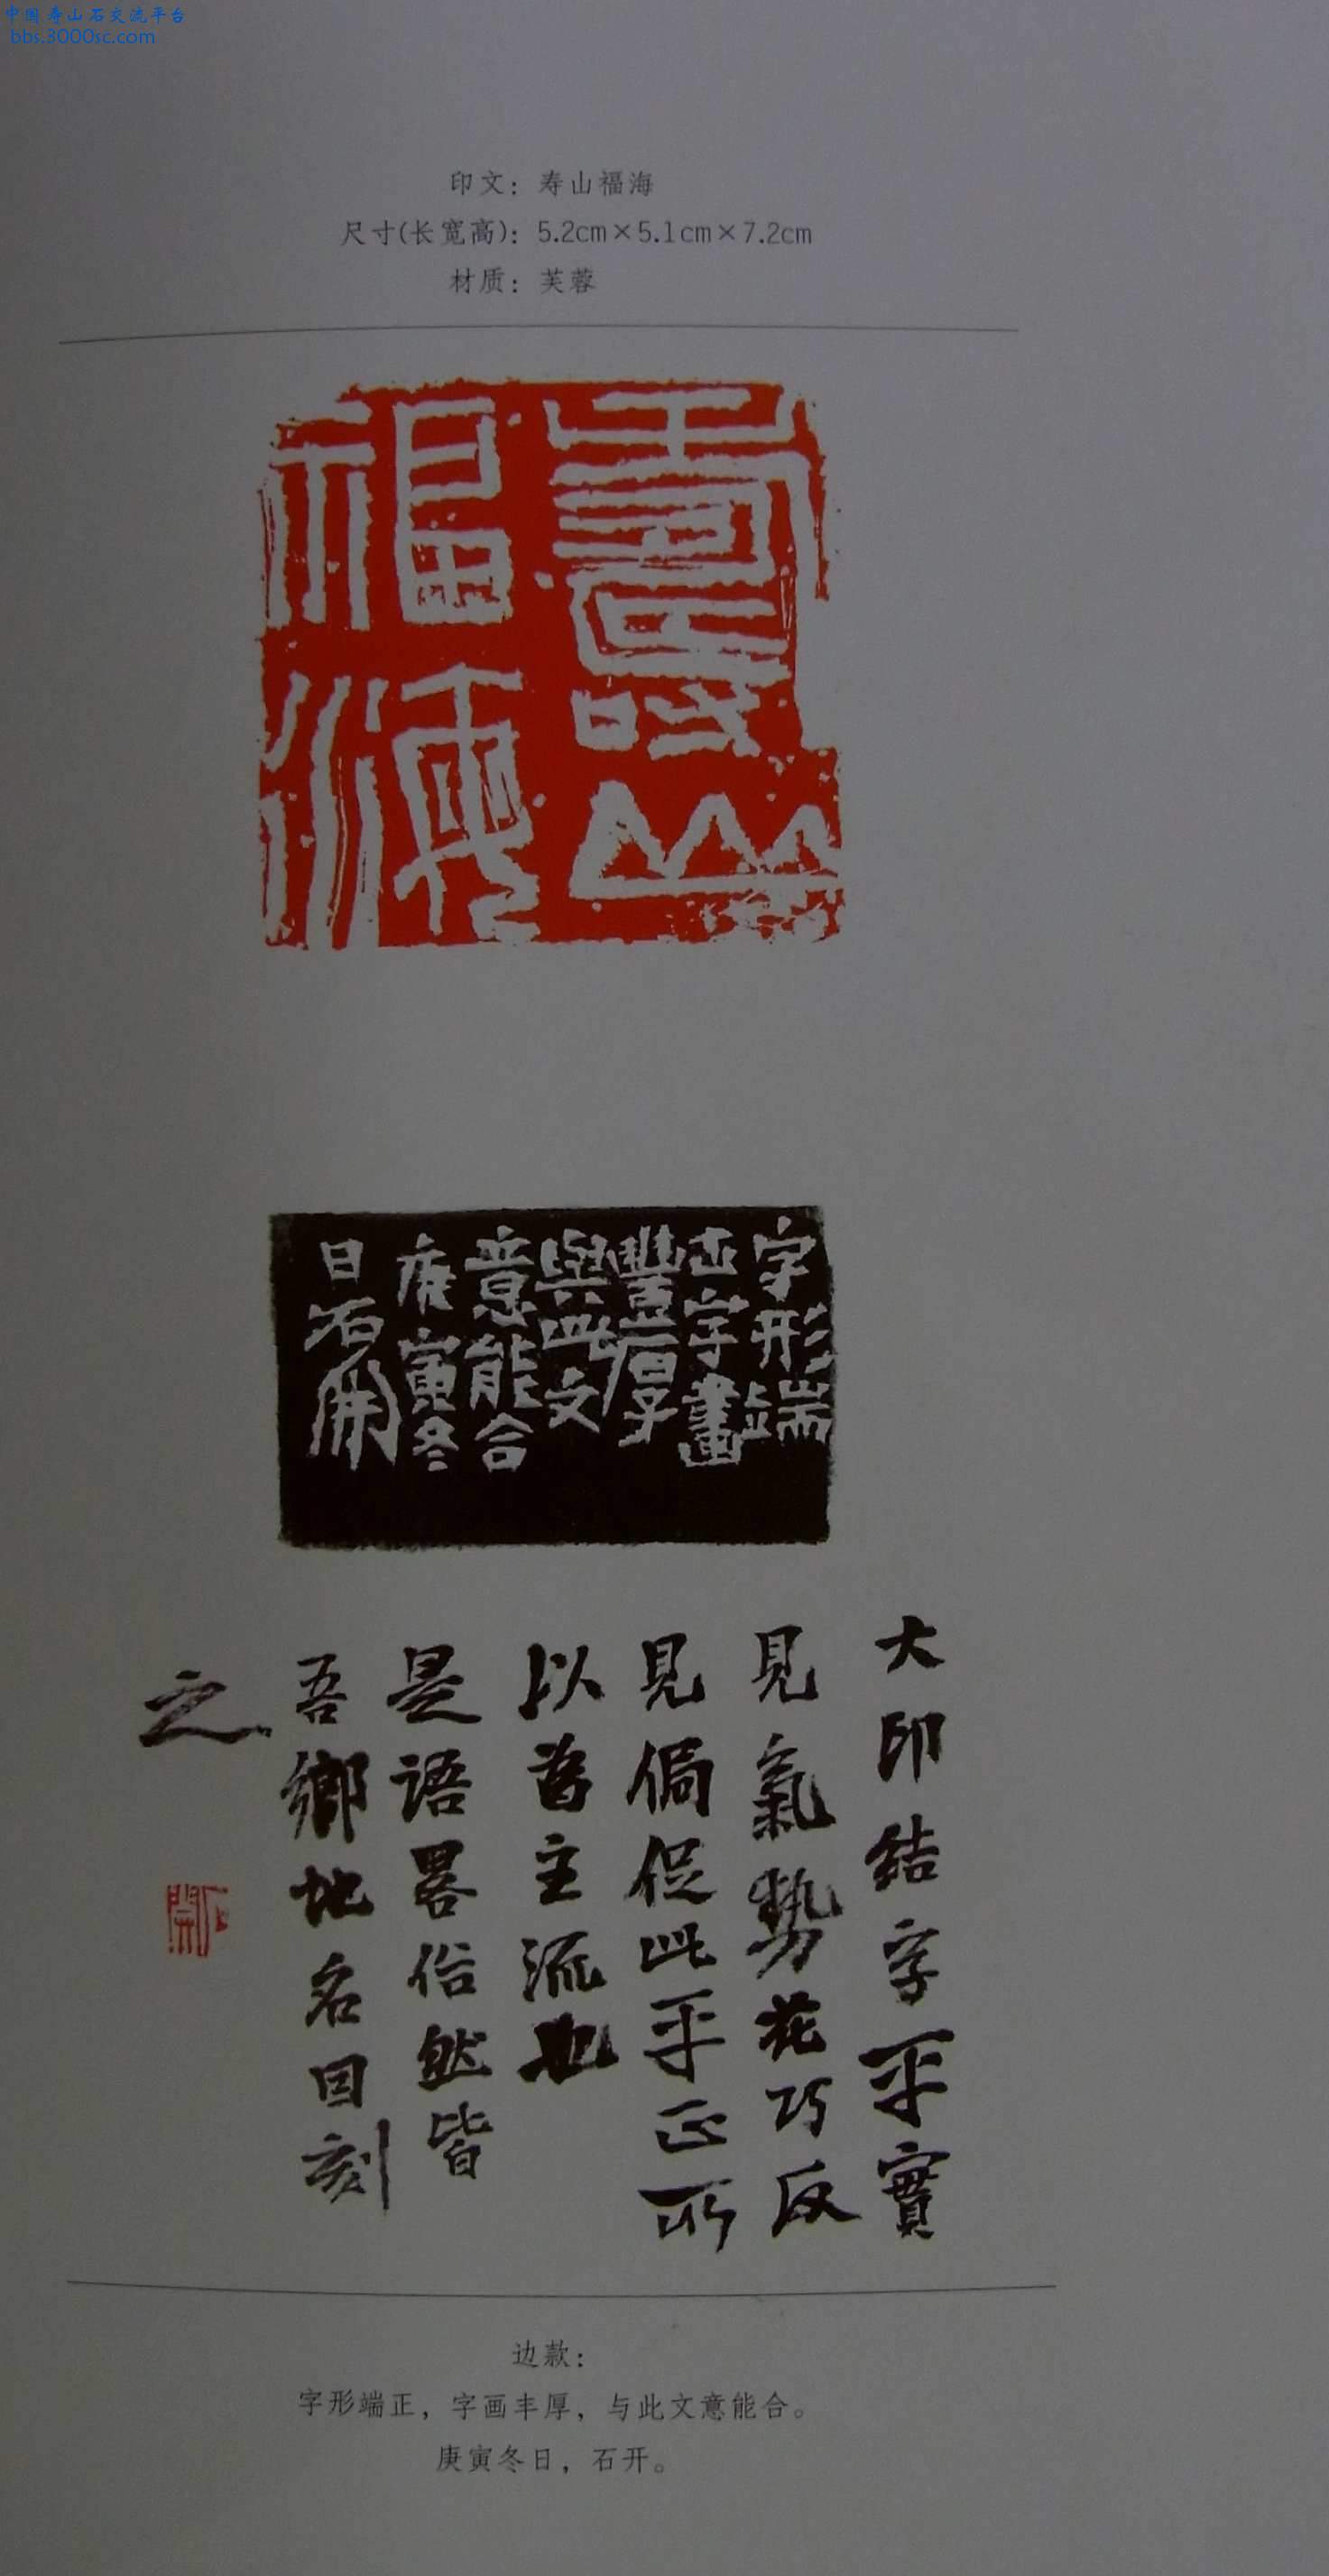 中国寿山石交流平台
bbs.3000sc.com
印文：寿山福海
尺寸(长宽高)：5.2cm×5.1cm×7.2cm
材质：芙蓉
壽山
福海
字形端
正字畫
豐厚
與此文
意能合
庚寅冬
日石開
大印結字平實
見氣勢花巧反
見侷促此平正所
以為主流也
是語畧俗然皆
吾鄉地名因刻
之
石開
边款：
字形端正，字画丰厚，与此文意能合。
庚寅冬日，石开。